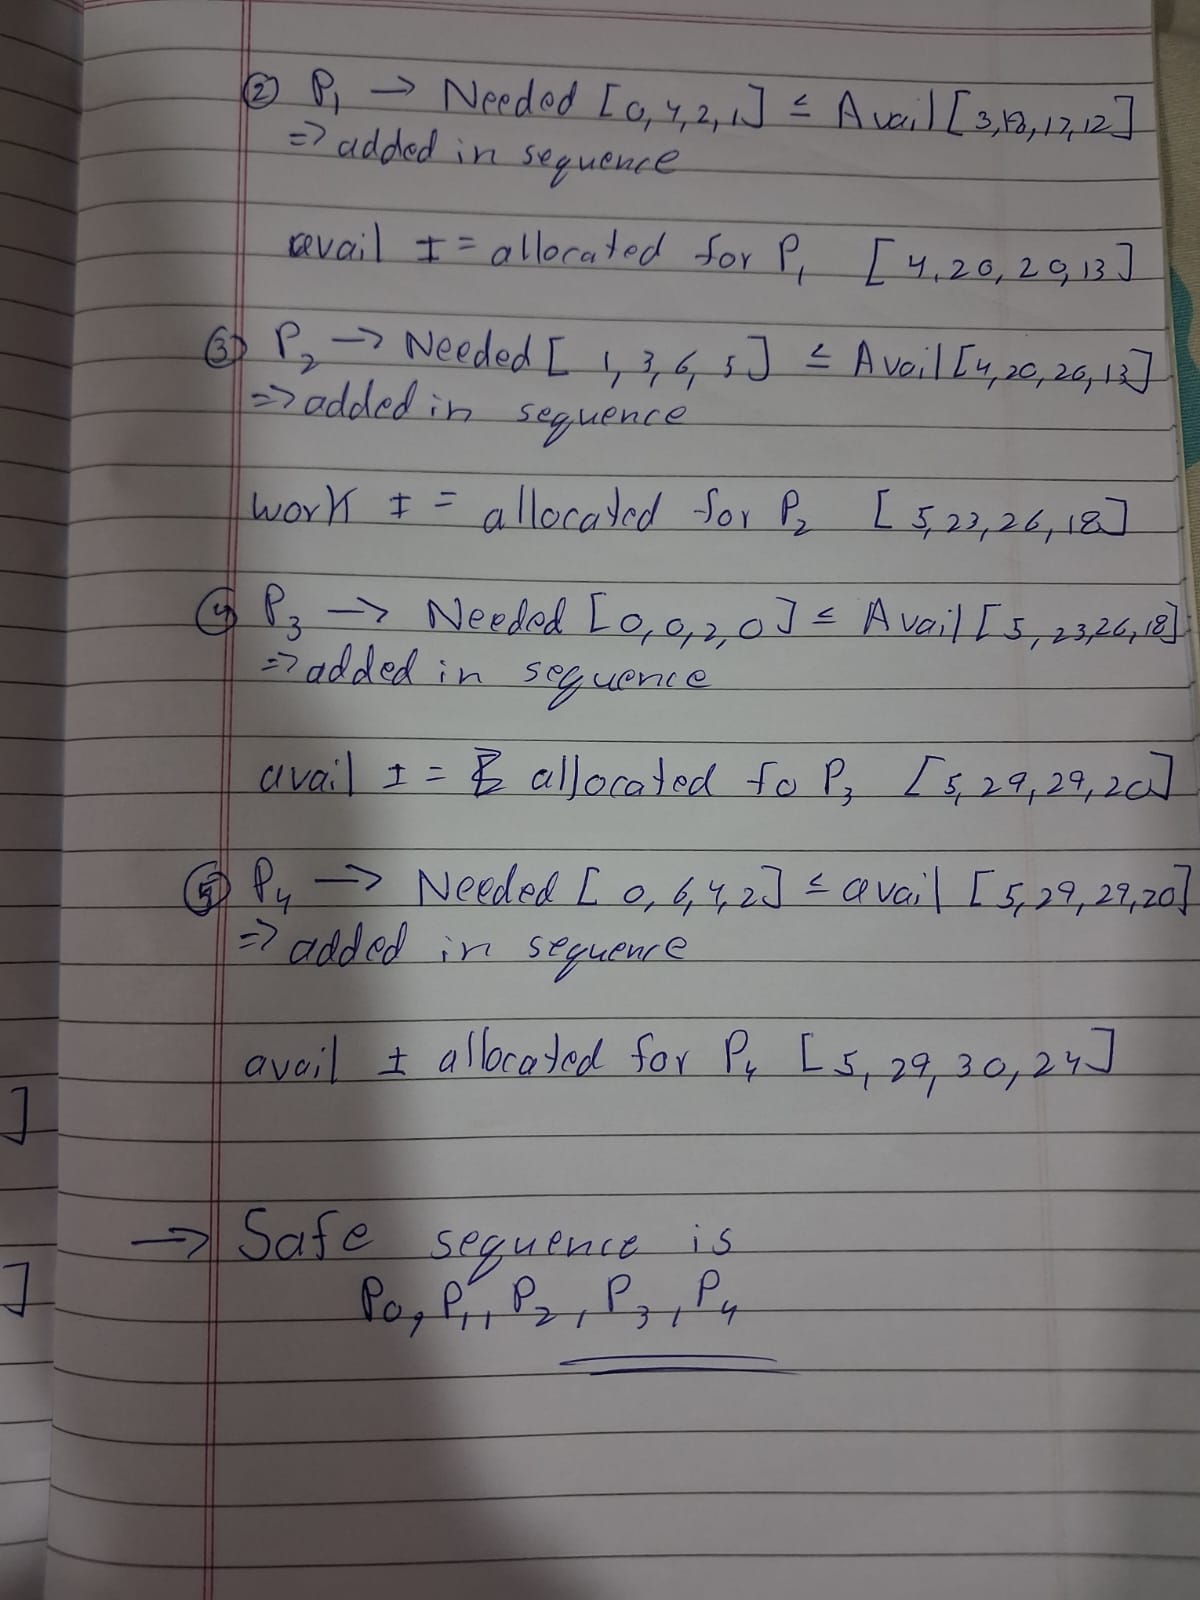 ② P₁ → Needed [0, 4, 2, 1] ≤ Avail [3,18,17,12]
⇒ added in sequence
avail += allocated for P₁ [4,20,20,13]
③ P₂ → Needed [1, 3, 6, 5] ≤ Avail [4,20,20,13]
⇒ added in sequence
work += allocated for P₂ [5,23,26,18]
④ P₃ → Needed [0,0,2,0] ≤ Avail [5,23,26,18]
⇒ added in sequence
avail += allocated fo P₃ [5,29,29,20]
⑤ P₄ → Needed [0,6,4,2] ≤ avail [5,29,29,20]
⇒ added in sequence
avail ± allocated for P₄ [5, 29, 30, 24]
]
→ Safe sequence is
]
P0, P₁, P₂, P₃, P₄